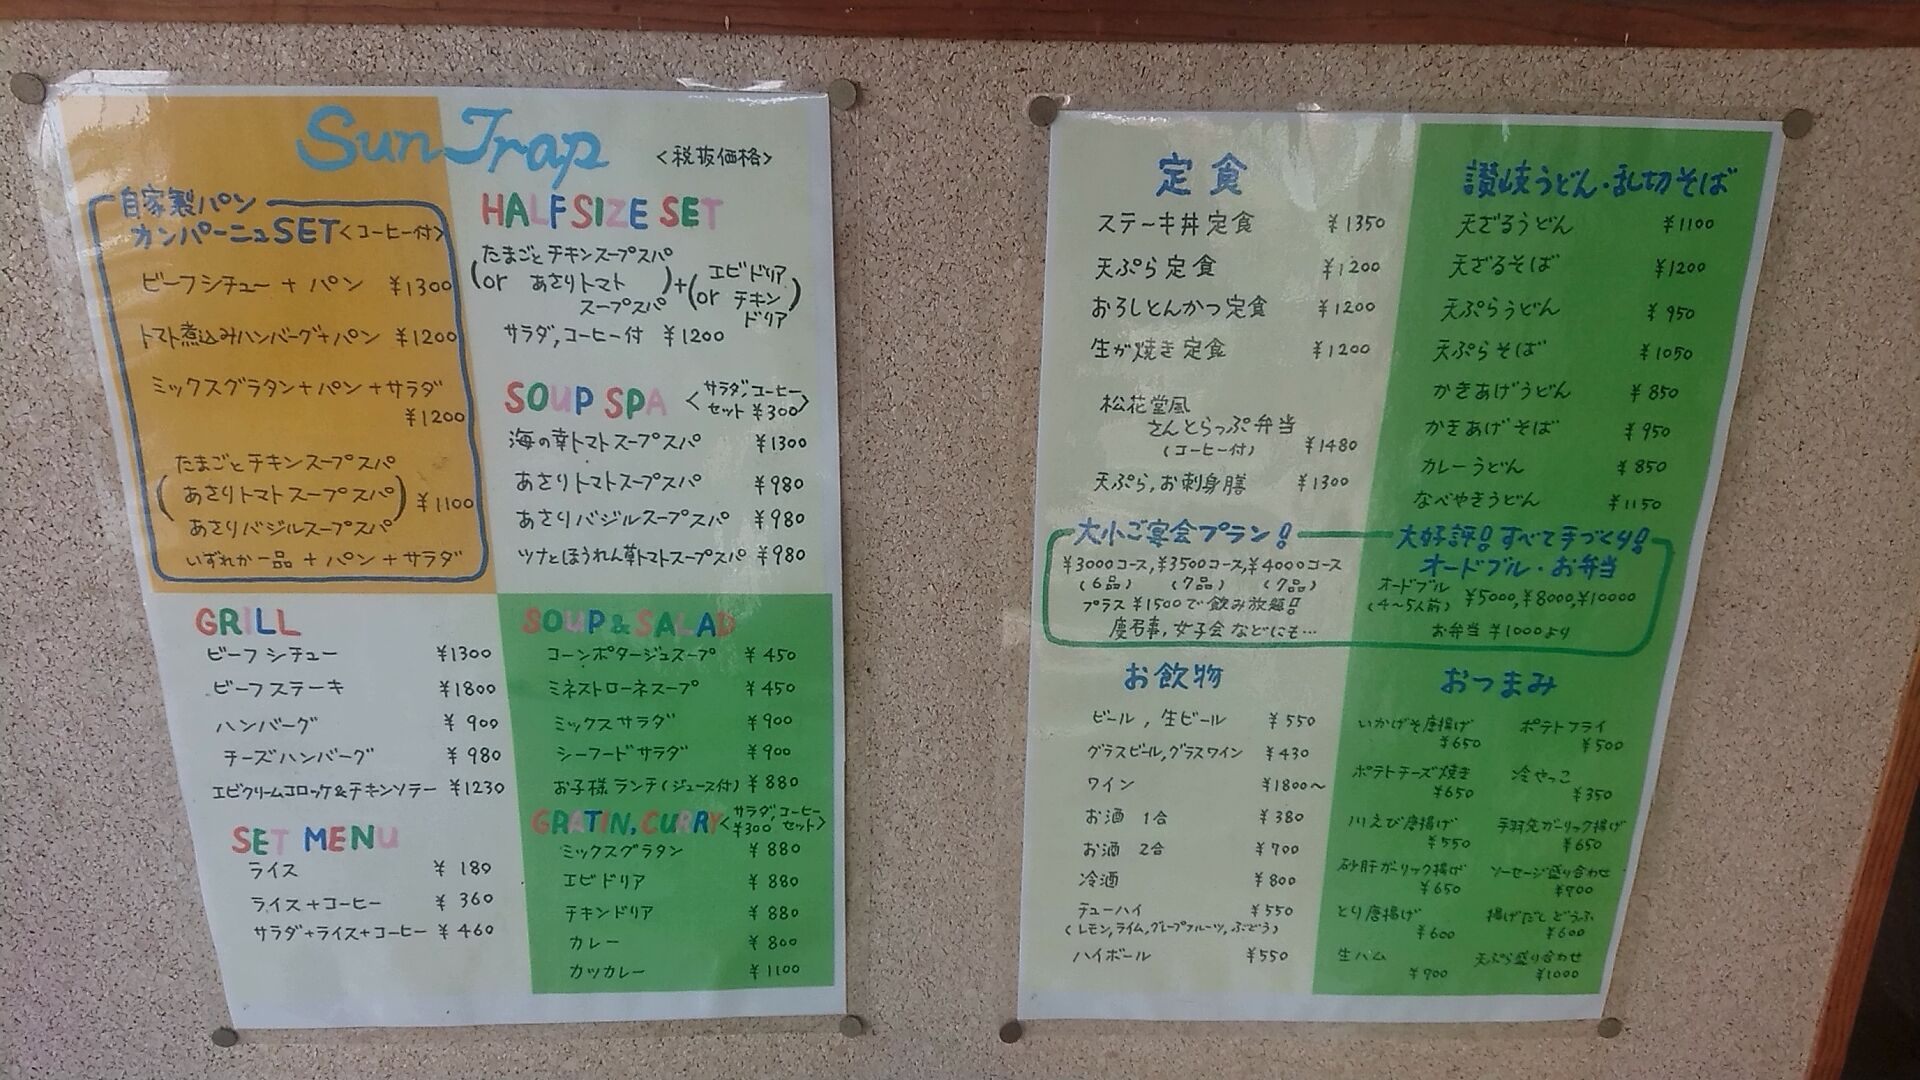 Sun Trap
<税抜価格>
自家製パン
カンパーニュSET<コーヒー付>
ビーフシチュー + パン ¥1300
トマト煮込みハンバーグ+パン ¥1200
ミックスグラタン+パン+サラダ
¥1200
たまごとチキンスープスパ
(あさりトマトスープスパ) ¥1100
あさりバジルスープスパ
いずれか一品 + パン + サラダ
HALF SIZE SET
たまごとチキンスープスパ
(or あさりトマトスープスパ)+(エビドリア or チキンドリア)
サラダ,コーヒー付 ¥1200
SOUP SPA <サラダ,コーヒーセット ¥300>
海の幸トマトスープスパ ¥1300
あさりトマトスープスパ ¥980
あさりバジルスープスパ ¥980
ツナとほうれん草トマトスープスパ ¥980
GRILL
ビーフシチュー ¥1300
ビーフステーキ ¥1800
ハンバーグ ¥900
チーズハンバーグ ¥980
エビクリームコロッケ&チキンソテー ¥1230
SET MENU
ライス ¥180
ライス+コーヒー ¥360
サラダ+ライス+コーヒー ¥460
SOUP & SALAD
コーンポタージュスープ ¥450
ミネストローネスープ ¥450
ミックスサラダ ¥900
シーフードサラダ ¥900
お子様ランチ(ジュース付) ¥880
GRATIN, CURRY <サラダ,コーヒー ¥300 セット>
ミックスグラタン ¥880
エビドリア ¥880
チキンドリア ¥880
カレー ¥800
カツカレー ¥1100
定食
ステーキ丼定食 ¥1350
天ぷら定食 ¥1200
おろしとんかつ定食 ¥1200
生が焼き定食 ¥1200
松花堂風
さんとらっぷ弁当
(コーヒー付) ¥1480
天ぷら,お刺身膳 ¥1300
讃岐うどん・乱切そば
天ざるうどん ¥1100
天ざるそば ¥1200
天ぷらうどん ¥950
天ぷらそば ¥1050
かきあげうどん ¥850
かきあげそば ¥950
カレーうどん ¥850
なべやきうどん ¥1150
大小ご宴会プラン!
¥3000コース,¥3500コース,¥4000コース
(6品) (7品) (7品)
プラス ¥1500で飲み放題!!
慶弔事,女子会などにも…
大好評!すべて手づくり!
オードブル・お弁当
オードブル
(4~5人前) ¥5000,¥8000,¥10000
お弁当 ¥1000より
お飲物
ビール,生ビール ¥550
グラスビール,グラスワイン ¥430
ワイン ¥1800~
お酒 1合 ¥380
お酒 2合 ¥700
冷酒 ¥800
チューハイ ¥550
(レモン,ライム,グレープフルーツ,ぶどう)
ハイボール ¥550
おつまみ
いかげそ唐揚げ ¥650
ポテトフライ ¥500
ポテトチーズ焼き ¥650
冷やっこ ¥350
川えび唐揚げ ¥550
手羽先ガーリック揚げ ¥650
砂肝ガーリック揚げ ¥650
ソーセージ盛り合わせ ¥700
とり唐揚げ ¥600
揚げだしどうふ ¥600
生ハム ¥700
天ぷら盛り合わせ ¥1000